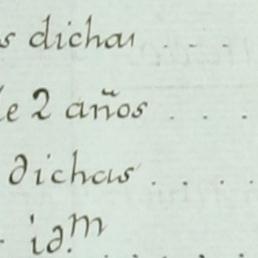 s dichas . . . .
de 2 años . . . .
dichas . . . .
id.m . . . .